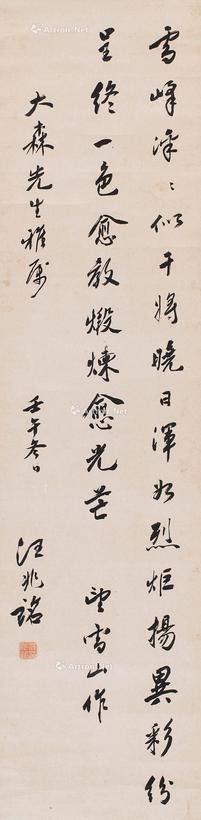 雪峰淬淬似干將曉日渾如烈炬揚異彩紛
呈終一色愈教煅煉愈光芒　望雪山作
大森先生雅屬
壬午冬日　汪兆銘